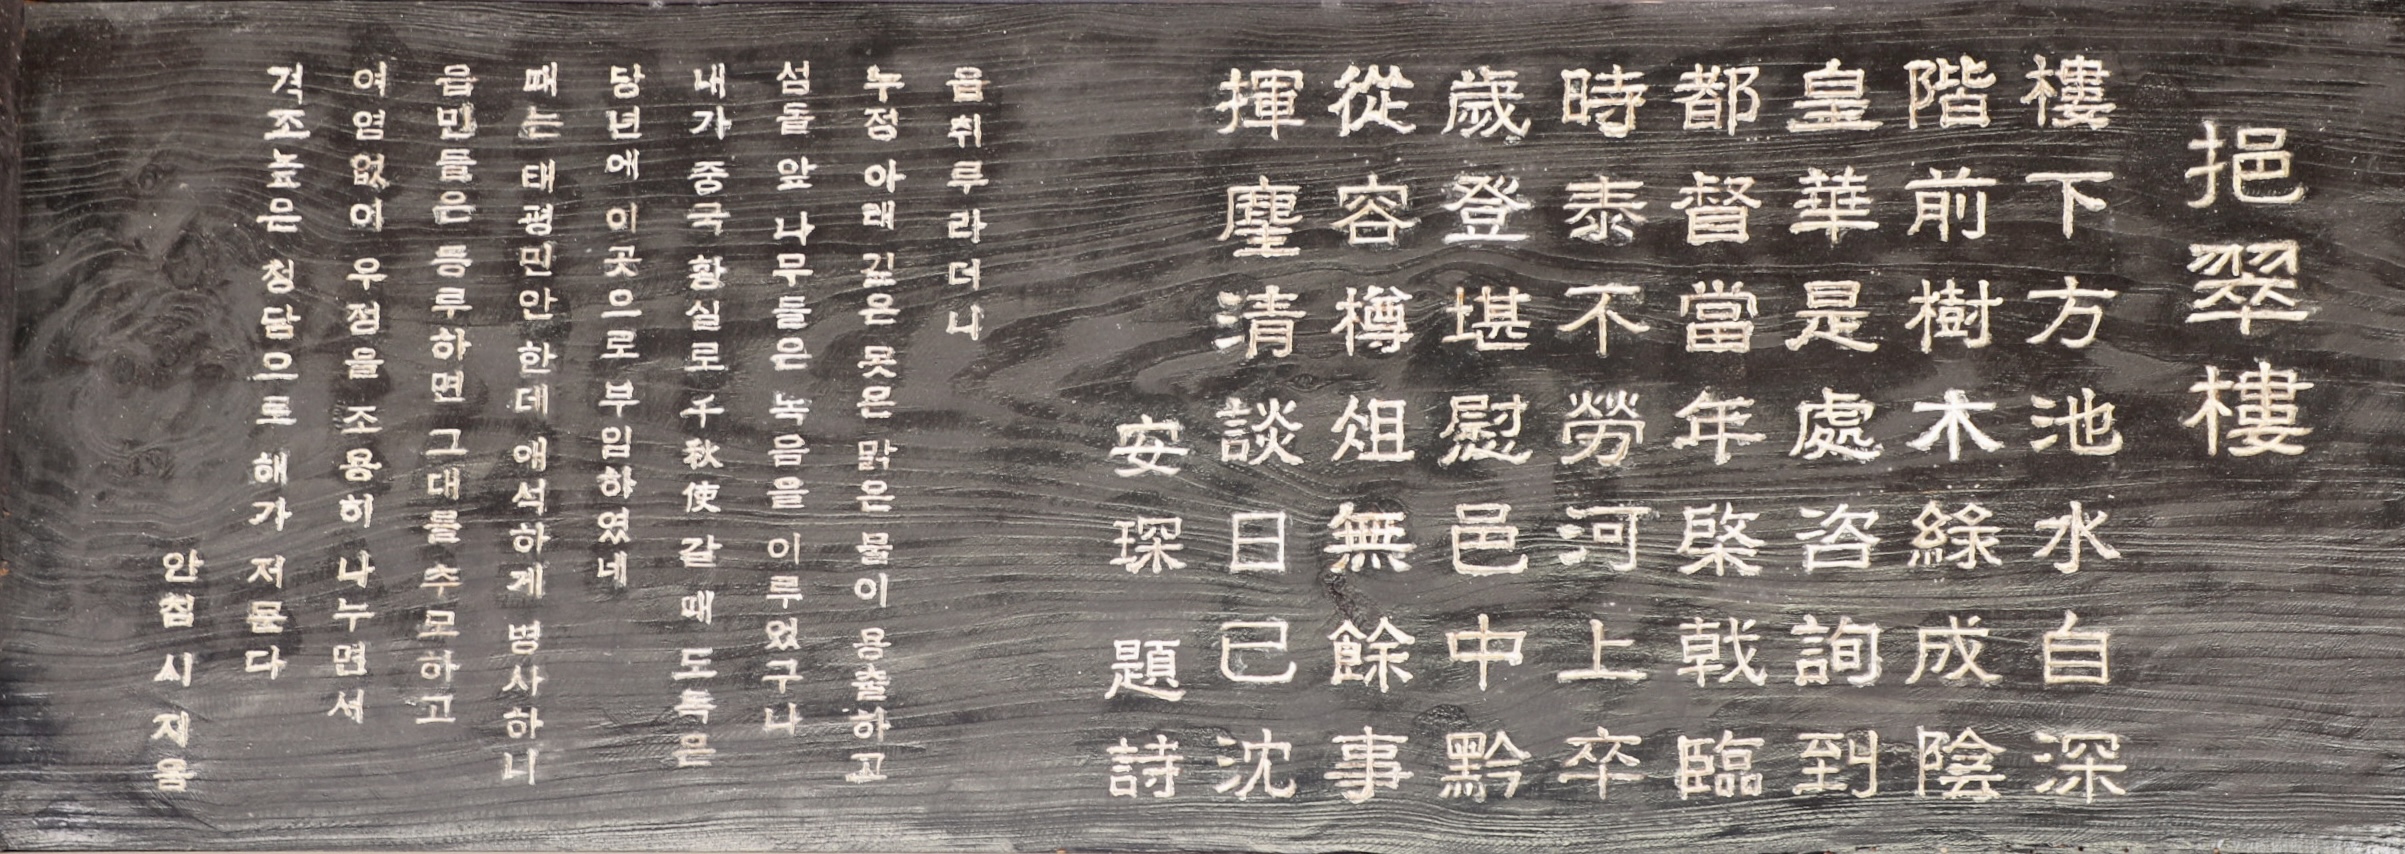 挹翠樓
樓下方池水自深
階前樹木綠成陰
皇華是處咨詢到
都督當年棨戟臨
時泰不勞河上卒
歲登堪慰邑中黔
從容樽俎無餘事
揮麈清談日已沈
安琛題詩
읍취루라더니
누정 아래 깊은 못은 맑은 물이 용출하고
섬돌 앞 나무들은 녹음을 이루었구나
내가 중국 황실로 千秋使 갈 때 도독은
당년에 이곳으로 부임하였네
때는 태평민안 한데 애석하게 병사하니
읍민들은 등루하면 그대를 추모하고
여염없이 우점을 조용히 나누면서
격조높은 청담으로 해가 저물다
안침 시 지음